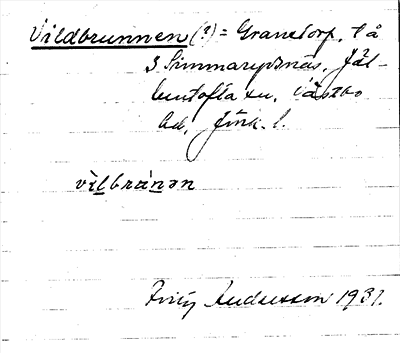 Vildbrunnen (?) = Granetorp, t å
S Simmarydsnäs, Jäl-
luntofta sn, Västbo
hd, Jönk. l.
vìlbránən
Fritz Andersson 1931.